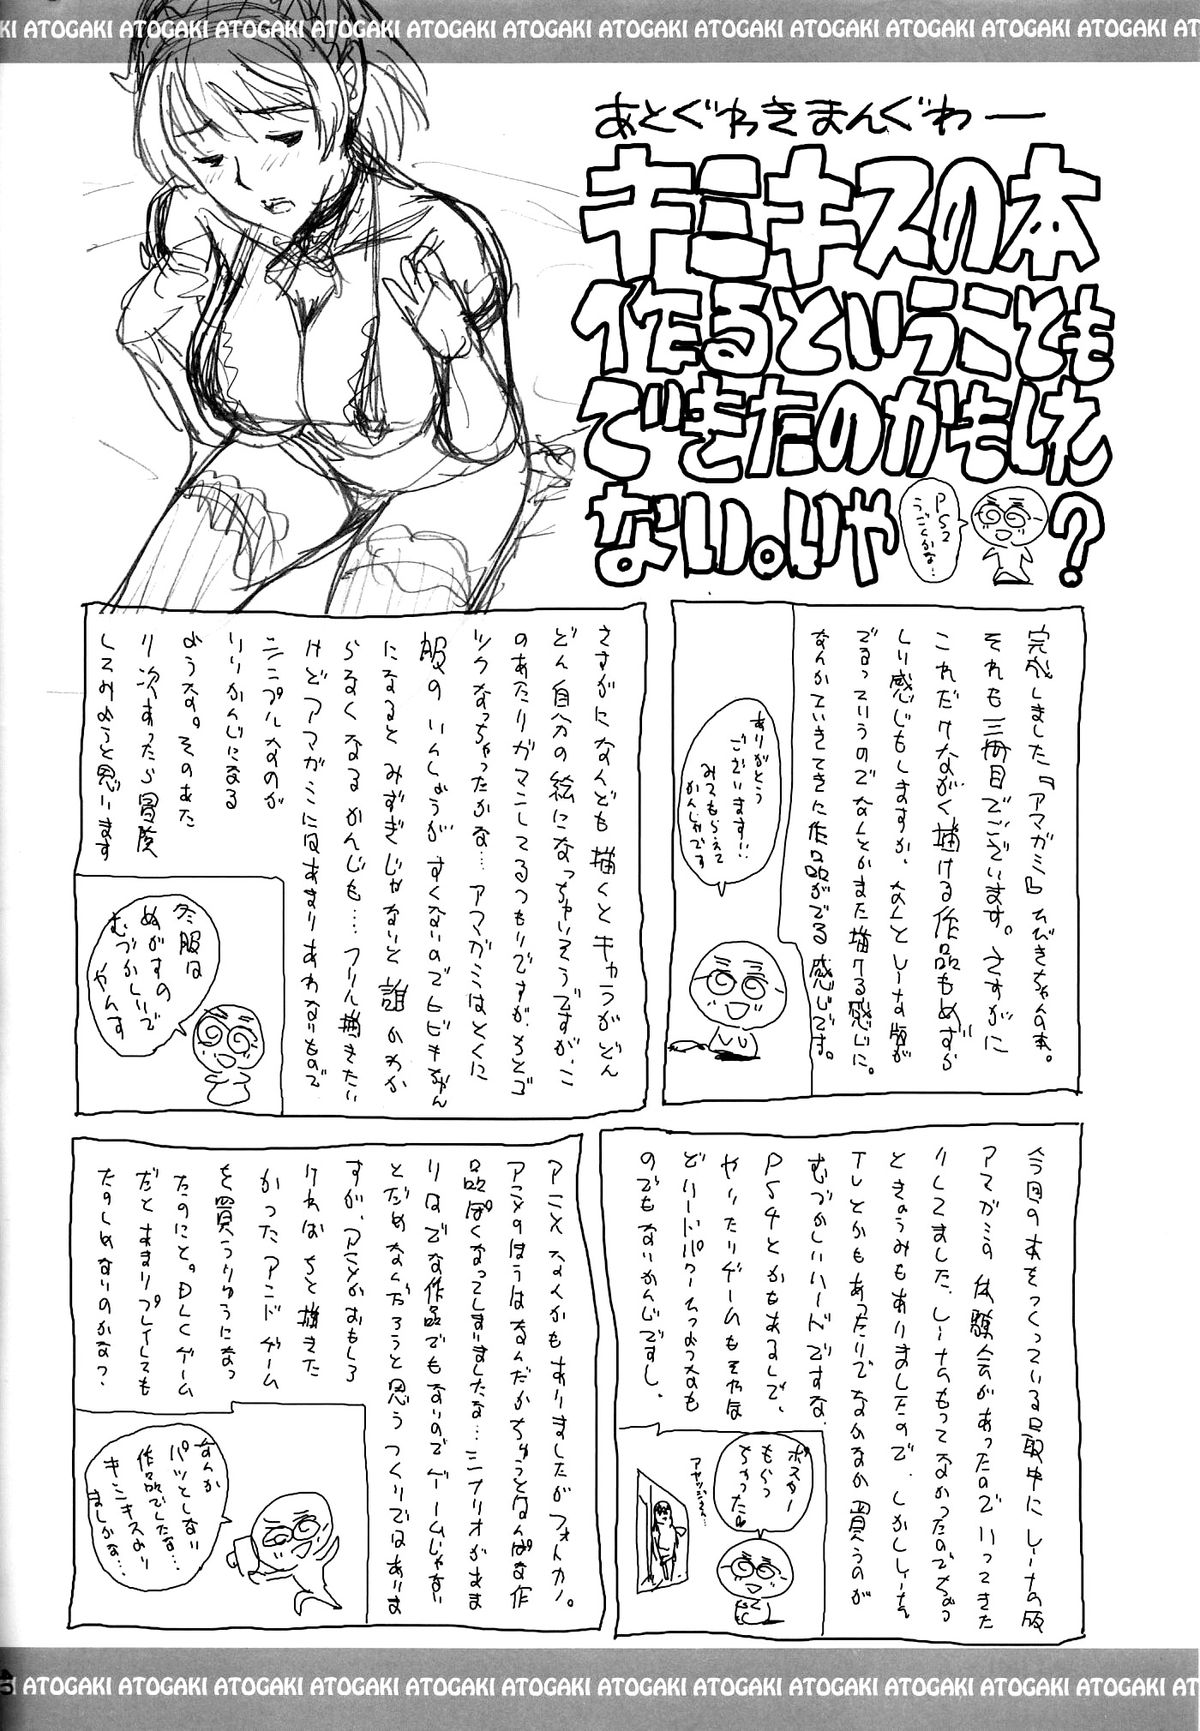 KI ATOGAKI ATOGAKI ATOGAKI ATOGAKI ATOGAKI ATOGAKI ATOGAKI ATOGAKI ATOGAKI ATOGAKI ATOGAKI AT
あとぐゎきまんぐゎー
キミキスの本
作るということも
できたのかもしれ
ない。いや
PS2
うごくかな…
?
完成しました『アマガミ』ひびきちゃん本。
それも三冊目でございます。さすがに
これだけながく描ける作品もめずら
しい感じもしますが、なんとしーな版が
でるっていうのでなんとかまた描ける感じに。
なんかていきてきに作品がでる感じです。
ありがとう
ございます!!
みてもらえて
かんしゃです
さすがになんども描くとキャラがどん
どん自分の絵になっちゃいそうですが、こ
のあたりガマンしてるつもりですが、ちとゴ
ツクなっちゃったかな…アマガミはとくに
服のいんしょうがすくないのでヒビキちゃん
になるとみずぎじゃないと誰かわか
らなくなるかんじも…フリル描きたい
けどアマガミにはあまりあわないもので
シンプルなのが
いいかんじになる
ような。そのあた
り次あったら冒険
してみようと思います
冬服は
ぬがすの
むづかしいで
やんす
今回の本をつくっている最中にしーなの版
アマガミの体験会があったのでいってきた
りしてました、しーなもってなかったのでちょっ
ときょうみもありましたので、しかししーなん
Tしとかもあったりでなかなか買うのが
むづかしいハードですな、
PS4とかもあるしで、
やりたいゲームもそんな
どハードパワーひつようなも
のでもないかんじですし。
ポスター
もらっ
ちゃった
アニメなんかもありましたがフォトカノ。
アニメのほうはなんだかちょっとはんぱな作
品ぽくなってしまいましたな…シナリオがあま
りはでな作品でもないのでゲームじゃない
とだめなんだろうと思うつくりではありま
すが、アニメがおもしろ
ければちと描きた
かったアンドゲーム
を買うりゆうになっ
たのにと。DLCゲーム
だとあまりプレイしても
たのしめないのかな?
なんか
パッとしない
作品でしたな…
キミキスより
ましかな…
45
KI ATOGAKI ATOGAKI ATOGAKI ATOGAKI ATOGAKI ATOGAKI ATOGAKI ATOGAKI ATOGAKI ATOGAKI ATOGAKI AT